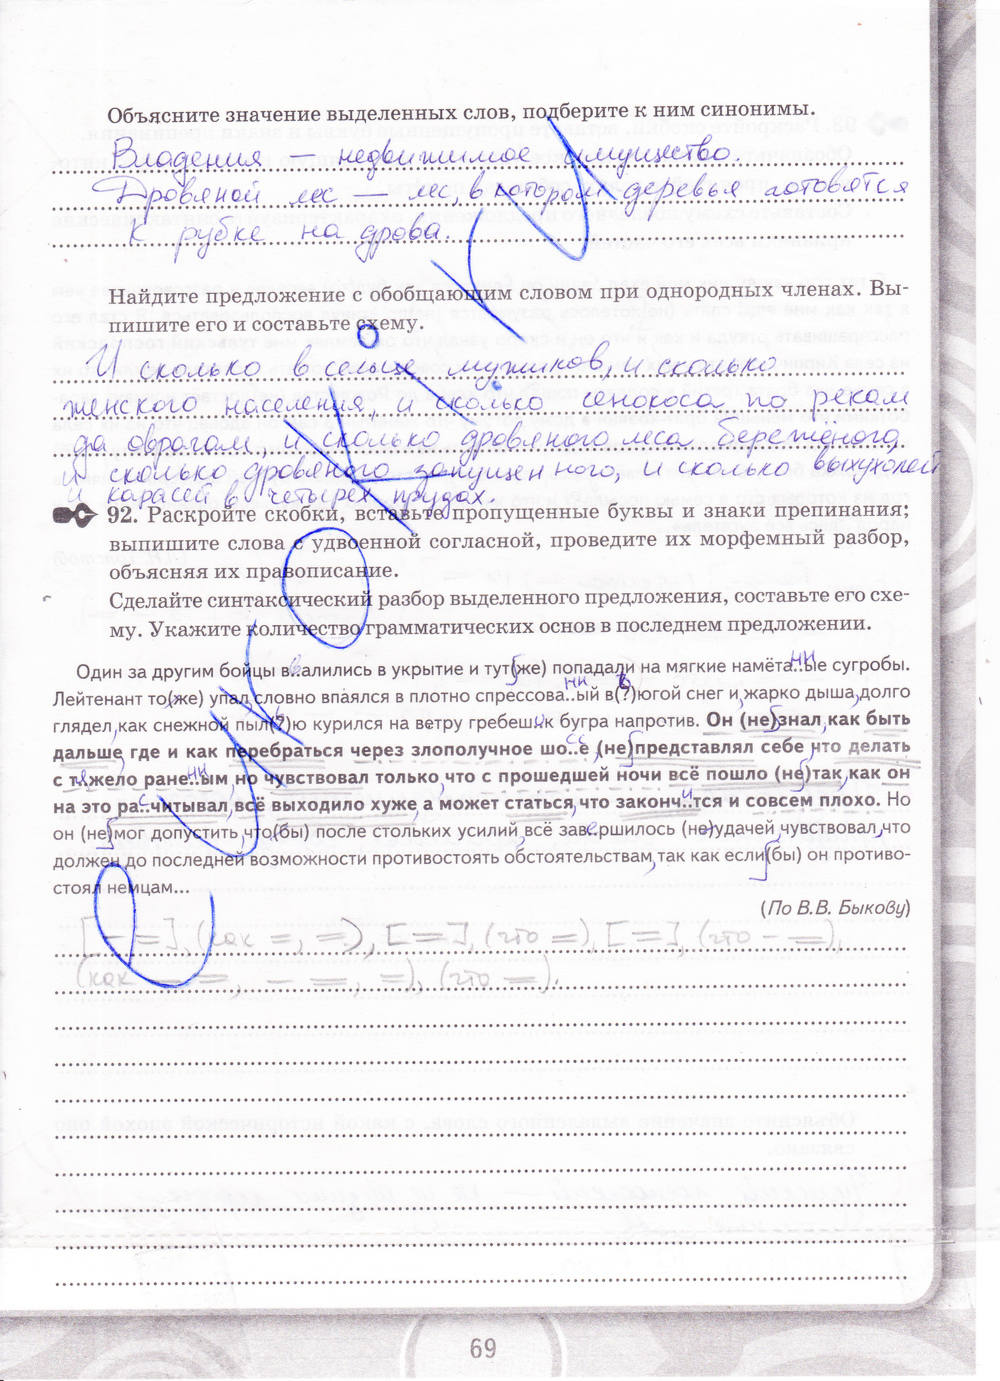 Объясните значение выделенных слов, подберите к ним синонимы.
Владения – недвижимое имущество.
Дровяной лес – лес, в котором деревья готовятся
к рубке на дрова.
Найдите предложение с обобщающим словом при однородных членах. Вы-
пишите его и составьте схему.
И сколько в селых мужиков, и сколько
женского населения, и сколько сенокоса по рекам
да оврагам, и сколько дровяного леса бережёного,
и сколько дровяного запущенного, и сколько выхухолей
и карасей в четырёх прудах.
92. Раскройте скобки, вставьте пропущенные буквы и знаки препинания;
выпишите слова с удвоенной согласной, проведите их морфемный разбор,
объясняя их правописание.
Сделайте синтаксический разбор выделенного предложения, составьте его схе-
му. Укажите количество грамматических основ в последнем предложении.
Один за другим бойцы в..алились в укрытие и тут(же) попадали на мягкие намёта..нные сугробы.
Лейтенант то(же) упал словно впаялся в плотно спрессова..нный в(?)ьюгой снег и, жарко дыша, долго
глядел, как снежной пыл(?)ю курился на ветру гребешик бугра напротив. Он (не) знал, как быть
дальше, где и как перебраться через злополучное шо..ссе, (не) представлял себе, что делать
с тяжело ране..нным, но чувствовал только, что с прошедшей ночи всё пошло (не) так, как он
на это ра..считывал, всё выходило хуже, а может статься, что законч..ится и совсем плохо. Но
он (не) мог допустить, что(бы) после стольких усилий, всё завершилось (не)удачей, чувствовал, что
должен до последней возможности противостоять обстоятельствам, так как если(бы) он противо-
стоял немцам...
(По В.В. Быкову)
[– =], (как =, =), [=], (что =), [=], (что – =),
(как – =, – =, =), (что =).
69
e u r o k i . r u